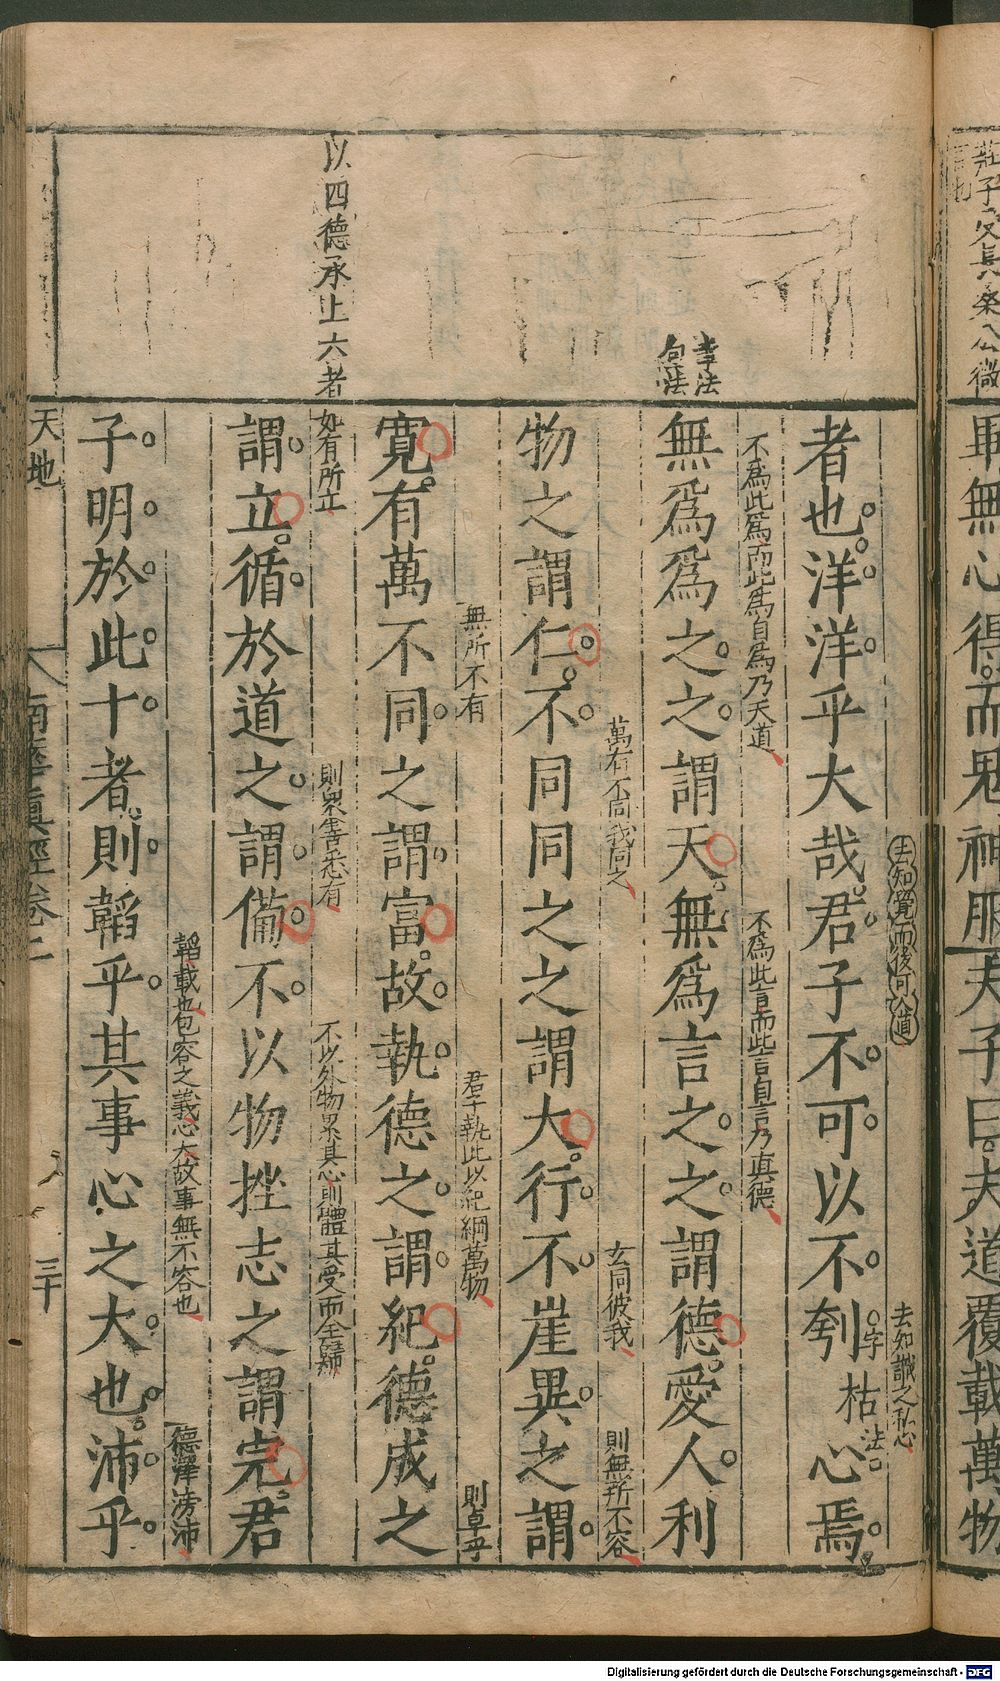 莊子
軍無心得而鬼神服夫子曰夫道覆載萬物
去知覺而後可入道
去知識之私心
者也洋洋乎大哉君子不可以不刳心焉
字
枯
法
不爲此爲而此爲自爲乃天道
不爲此言而此言自言乃眞德
章法
句法
無爲爲之之謂天無爲言之之謂德愛人利
萬有不同我同之
玄同彼我
則無所不容
物之謂仁不同同之之謂大行不崖異之謂
無所不有
君子執此以紀綱萬物
則卓乎
寬有萬不同之謂富故執德之謂紀德成之
以四德承上六者
如有所立
則衆善悉有
不以外物累其心則體其受而全歸
謂立循於道之謂備不以物挫志之謂完君
韜載也包容之義心大故事無不容也
德澤滂沛
子明於此十者則韜乎其事心之大也沛乎
天地
南華眞經卷二
三十
Digitalisierung gefördert durch die Deutsche Forschungsgemeinschaft - DFG